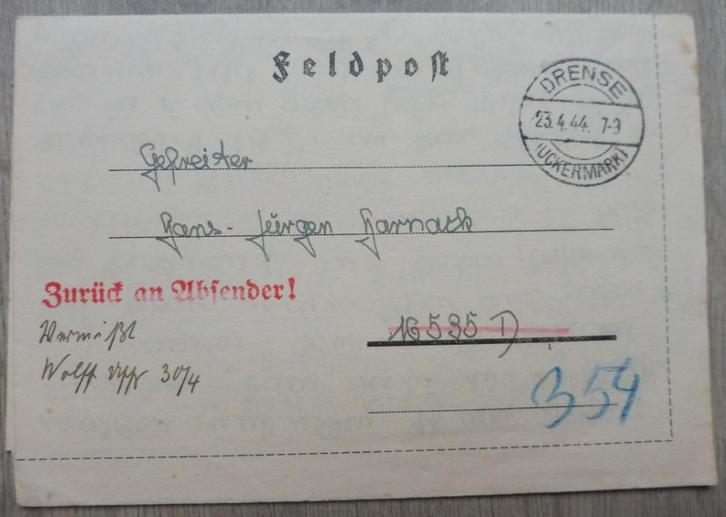 Feldpost
DRENSE
23.4.44. 7-9
(UCKERMARK)
Gefreiter
Hans-Jürgen Harnack
Zurück an Absender!
Vermißt
16535 D
Wolff Uffz 30/4
354